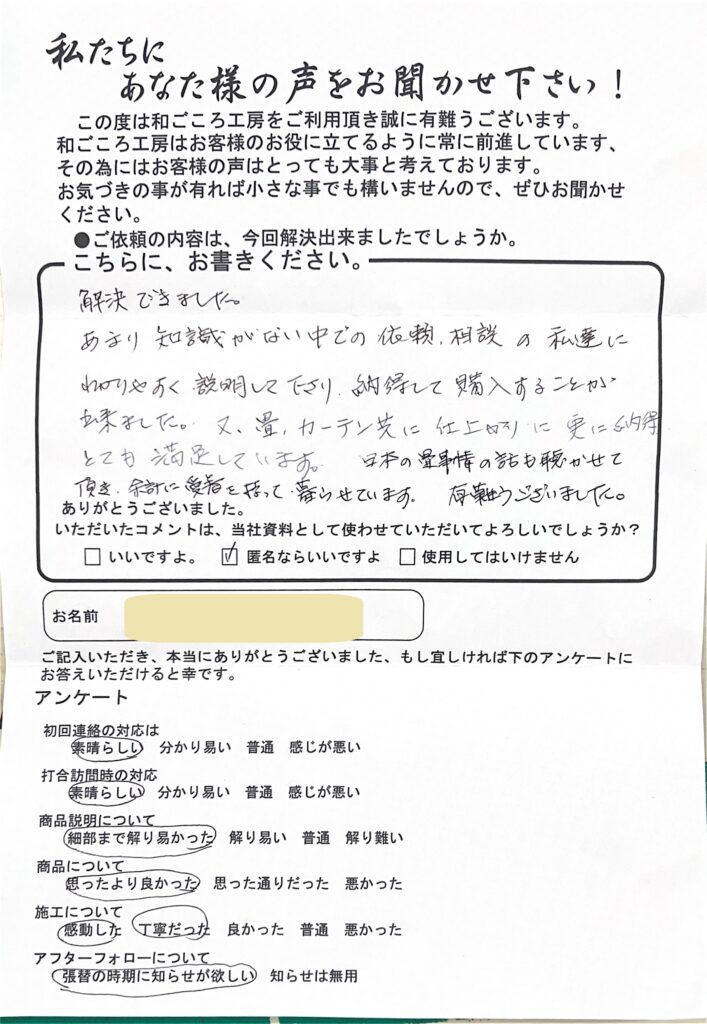 私たちに
あなた様の声をお聞かせ下さい!
この度は和ごころ工房をご利用頂き誠に有難うございます。
和ごころ工房はお客様のお役に立てるように常に前進しています、
その為にはお客様の声はとっても大事と考えております。
お気づきの事が有れば小さな事でも構いませんので、ぜひお聞かせ
ください。
●ご依頼の内容は、今回解決出来ましたでしょうか。
こちらに、お書きください。
解決できました。
あまり知識がない中での依頼、相談の私達に
わかりやすく説明して下さり、納得して購入することが
出来ました。又、畳、カーテン共に仕上がりに更に納得
とても満足しています。日本の畳事情の話も聴かせて
頂き、余計に愛着を持って暮らせています。有難うございました。
ありがとうございました。
いただいたコメントは、当社資料として使わせていただいてよろしいでしょうか?
□ いいですよ。 ☑ 匿名ならいいですよ □ 使用してはいけません
お名前
ご記入いただき、本当にありがとうございました、もし宜しければ下のアンケートに
お答えいただけると幸です。
アンケート
初回連絡の対応は
素晴らしい 分かり易い 普通 感じが悪い
打合訪問時の対応
素晴らしい 分かり易い 普通 感じが悪い
商品説明について
細部まで解り易かった 解り易い 普通 解り難い
商品について
思ったより良かった 思った通りだった 悪かった
施工について
感動した 丁寧だった 良かった 普通 悪かった
アフターフォローについて
張替の時期に知らせが欲しい 知らせは無用